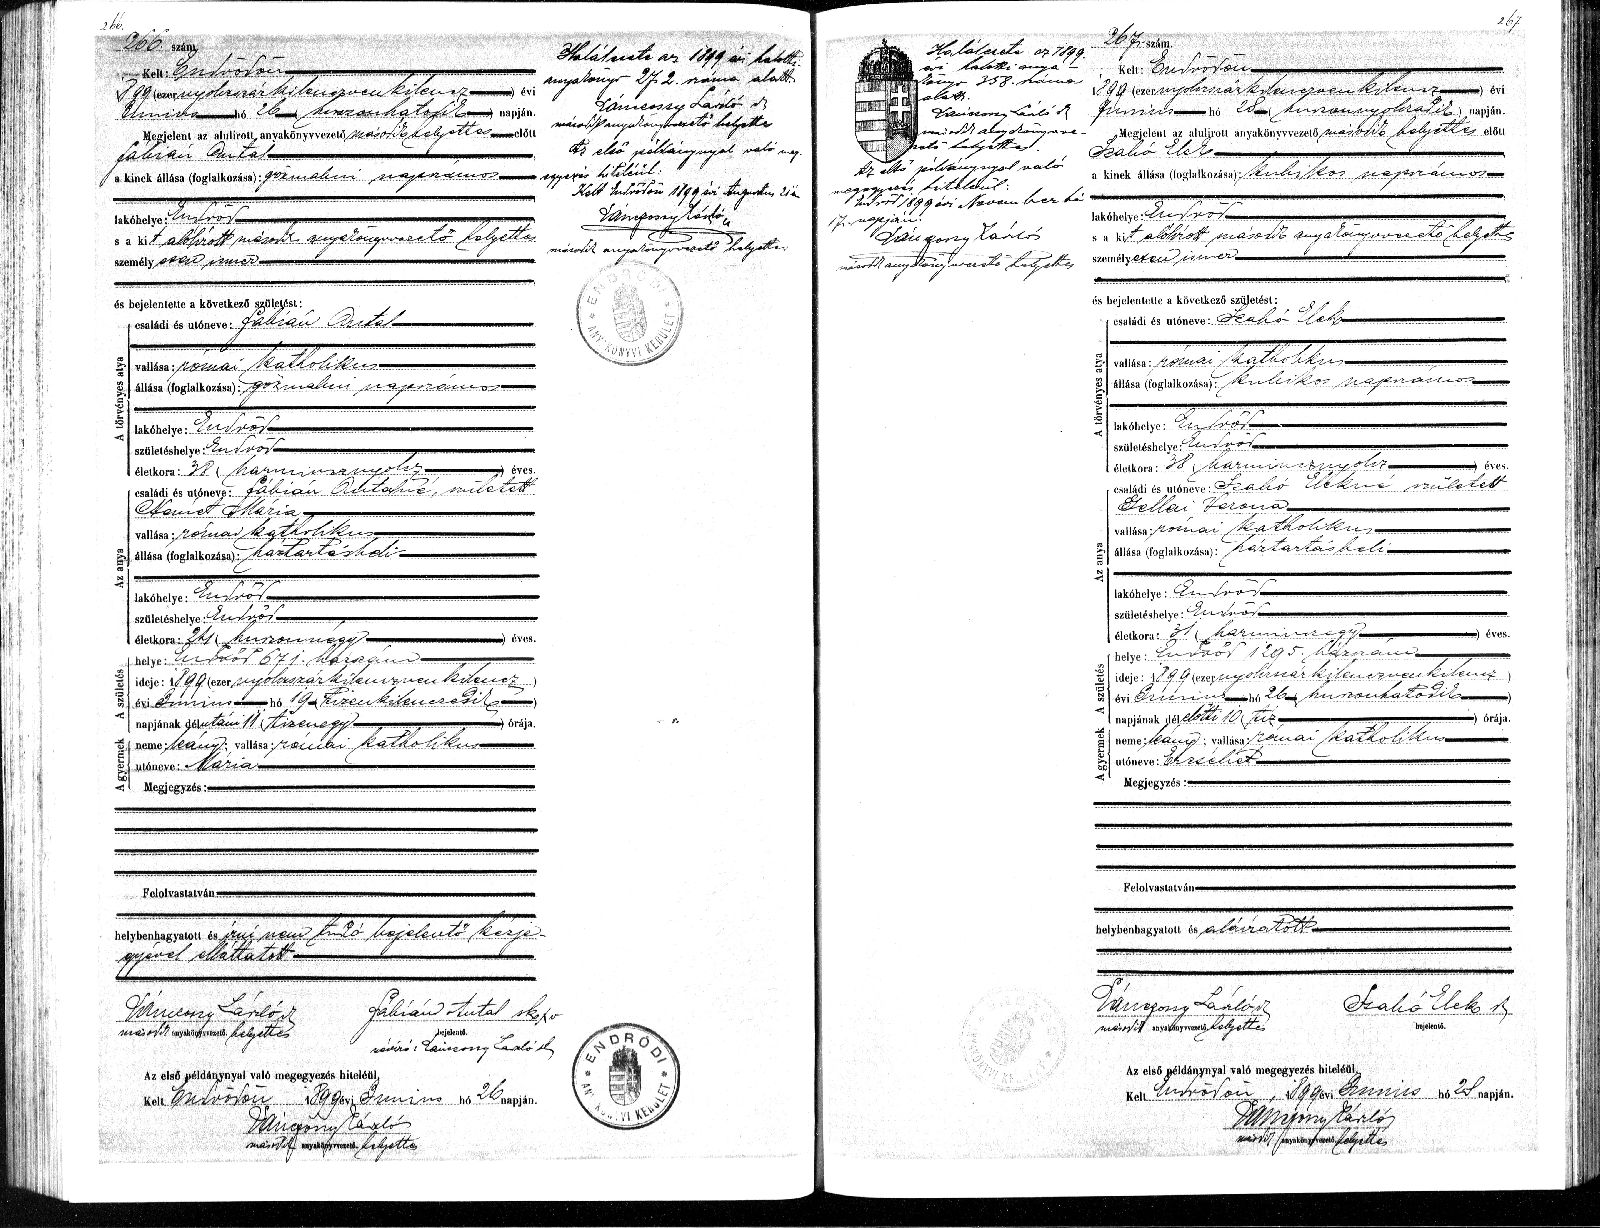 266.
266. szám.
Kelt: Endrődön
1899 (ezer nyolcszázkilenczvenkilencz) évi
Június hó 26 (huszonhatodik) napján.
Megjelent az alulirott anyakönyvvezető második helyettes előtt
Fábián Antal
a kinek állása (foglalkozása): gőzmalmi napszámos
lakóhelye: Endrőd
s a kit alólírott második anyakönyvvezető helyettes
személyesen ismer
és bejelentette a következő születést:
A törvényes atya
családi és utóneve: Fábián Antal
vallása: római katholikus
állása (foglalkozása): gőzmalmi napszámos
lakóhelye: Endrőd
születéshelye: Endrőd
életkora: 38 (harmincznyolcz) éves.
Az anya
családi és utóneve: Fábián Antalné, született
Német Mária
vallása: római katholikus
állása (foglalkozása): háztartásbeli
lakóhelye: Endrőd
születéshelye: Endrőd
életkora: 24 (huszonnégy) éves.
A születés
helye: Endrőd 671. házszám
ideje: 1899 (ezer nyolcszázkilenczvenkilencz)
évi Június hó 19 (tizenkilenczedik)
napjának délutáni 11 (tizenegy) órája.
A gyermek
neme: leány; vallása: római katholikus
utóneve: Mária
Megjegyzés:
Felolvastatván
helybenhagyatott és írni nem tudó bejelentő kézje-
gyével elláttatott
Vánczony László
második anyakönyvvezető helyettes
Fábián Antal
bejelentő.
névíró: Vánczony László
Az első példánynyal való megegyezés hiteléül,
Kelt Endrődön 1899 évi Június hó 26 napján.
Vánczony László
második anyakönyvvezető helyettes
Halálesete az 1899 évi halotti
anyakönyv 272. száma alatt
Vánczony László
második anyakönyvvezető helyettes
Az első példánynyal való meg-
egyezés hiteléül:
Kelt Endrődön 1899 évi Augusztus 21én
Vánczony László
második anyakönyvvezető helyettes
ENDRŐDI
ANYAKÖNYVI KERÜLET
ENDRŐDI
ANYAKÖNYVI KERÜLET
267.
Halálesete az 1899
évi halotti anya-
könyv 358. száma
alatt.
Vánczony László
második anyakönyvve-
zető helyettes.
Az első példánynyal való
megegyezés hiteléül:
Endrőd 1899 évi November hó
17. napján.
Vánczony László
második anyakönyvvezető helyettes
267. szám.
Kelt: Endrődön
1899 (ezer nyolcszázkilenczvenkilencz) évi
Június hó 28 (huszonnyolczadik) napján.
Megjelent az alulirott anyakönyvvezető második helyettes előtt
Szabó Elek
a kinek állása (foglalkozása): kubikos napszámos
lakóhelye: Endrőd
s a kit alólírott második anyakönyvvezető helyettes
személyesen ismer
és bejelentette a következő születést:
A törvényes atya
családi és utóneve: Szabó Elek
vallása: római katholikus
állása (foglalkozása): kubikos napszámos
lakóhelye: Endrőd
születéshelye: Endrőd
életkora: 38 (harmincznyolcz) éves.
Az anya
családi és utóneve: Szabó Elekné született
Gellai Verona
vallása: római katholikus
állása (foglalkozása): háztartásbeli
lakóhelye: Endrőd
születéshelye: Endrőd
életkora: 31 (harminczegy) éves.
A születés
helye: Endrőd 1295. házszám
ideje: 1899 (ezer nyolcszázkilenczvenkilencz)
évi Június hó 26 (huszonhatodik)
napjának délelőtti 10 (tíz) órája.
A gyermek
neme: leány; vallása: római katholikus
utóneve: Erzsébet
Megjegyzés:
Felolvastatván
helybenhagyatott és aláíratott
Vánczony László
második anyakönyvvezető helyettes
Szabó Elek
bejelentő.
Az első példánynyal való megegyezés hiteléül,
Kelt Endrődön, 1899 évi Június hó 28 napján.
Vánczony László
második anyakönyvvezető helyettes